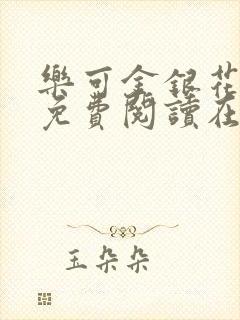 樂可金銀花
免費閱讀在
玉朵朵